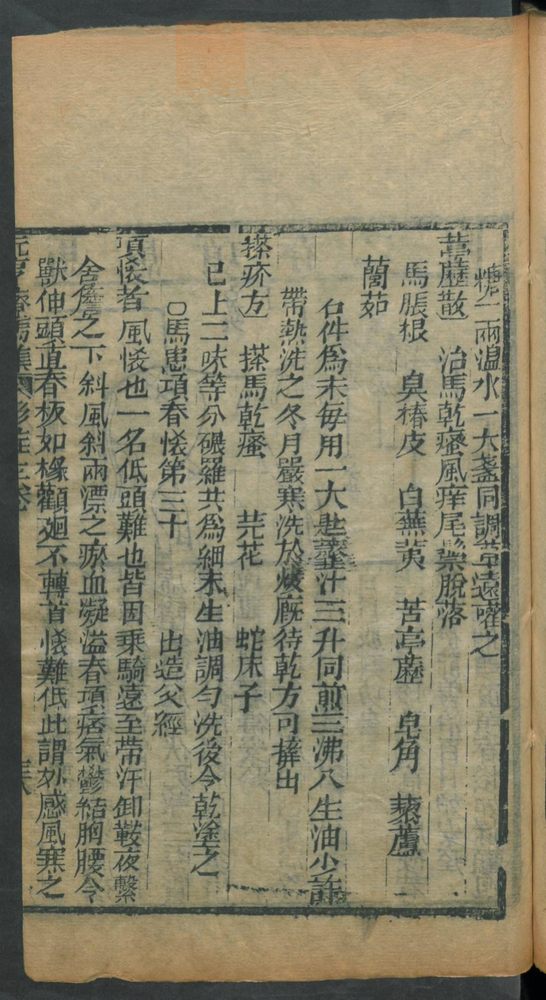 糖二兩溫水一大盞同調草遠灌之
葶藶散　治馬乾瘙風痒尾鬃脫落
馬脹根　臭椿皮　白蕪荑　苦亭藶　皂角　藜蘆
蘭茹
右件為末每用一大匙虀汁三升同煎三沸入生油少許
帶熱洗之冬月嚴寒洗於煖廐待乾方可摔出
搽疥方　搽馬乾瘙　芫花　蛇床子
已上二味等分碾羅共為細末生油調勻洗後令乾塗之
○馬患項脊㤥第三十　出造父經
項㤥者風㤥也一名低頭難也皆因乗騎遠至帶汗卸鞍夜繫
舍簷之下斜風斜雨漂之瘀血凝溢脊項痞氣鬱結胸腰令
獸伸頭直脊板如椽顧廻不轉首㤥難低此謂外感風寒之
元亨療馬集